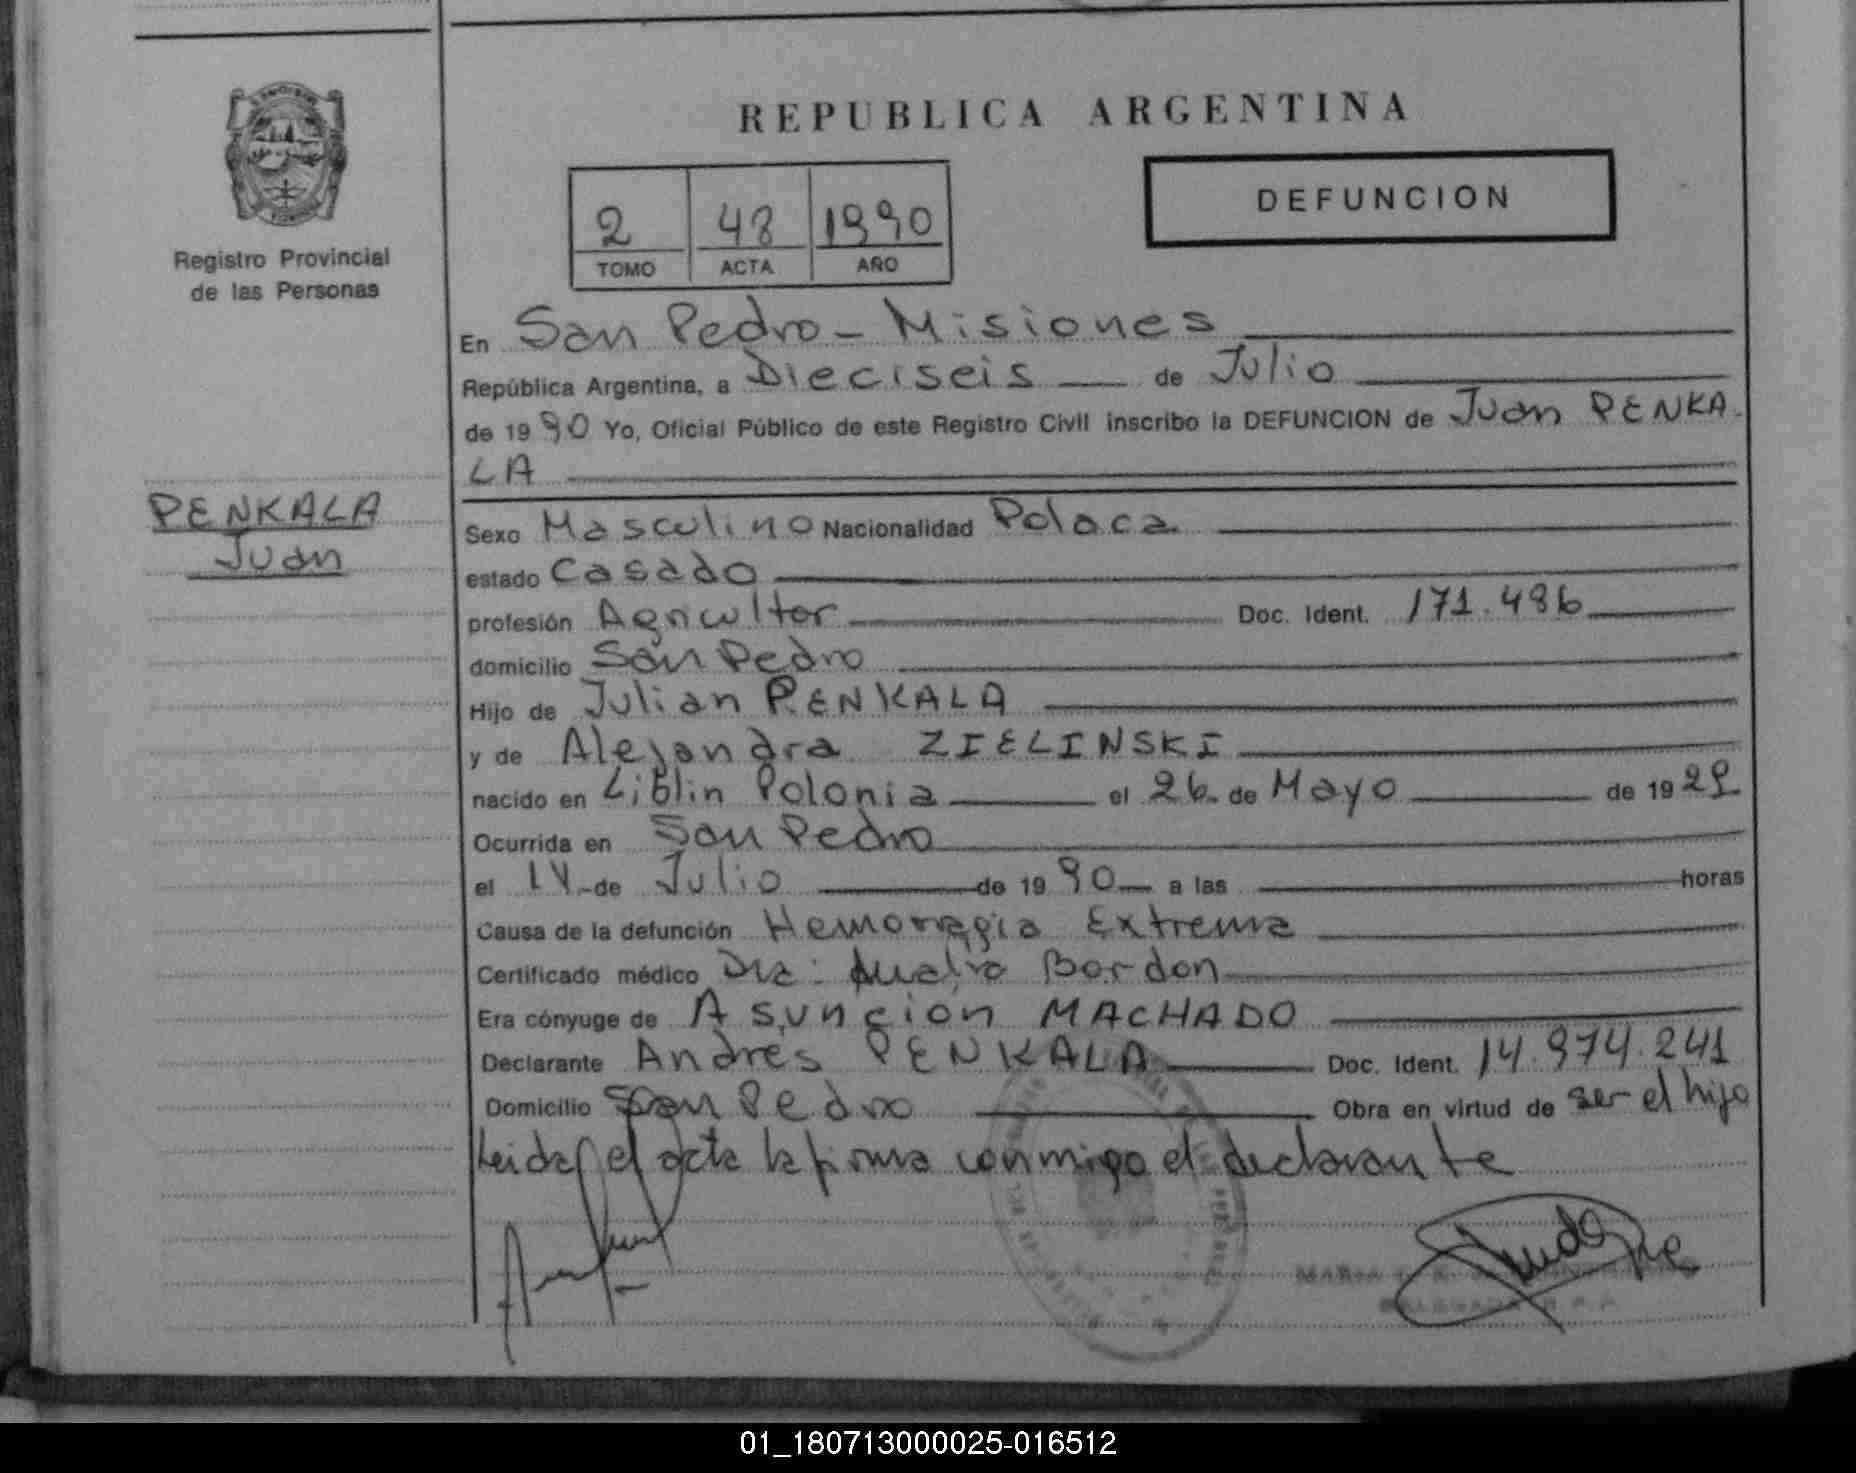 REPUBLICA ARGENTINA
DEFUNCION
2 48 1990
TOMO ACTA AÑO
Registro Provincial
de las Personas
En San Pedro - Misiones
República Argentina, a Dieciseis de Julio
de 1990 Yo, Oficial Público de este Registro Civil inscribo la DEFUNCION de Juan PENKA-
LA
PENKALA
Juan
Sexo Masculino Nacionalidad Polaca
estado Casado
profesión Agricultor Doc. Ident. 171.486
domicilio San Pedro
Hijo de Julian PENKALA
y de Alejandra ZIELINSKI
nacido en Liblin Polonia el 26 de Mayo de 1929
Ocurrida en San Pedro
el 14 de Julio de 1990 a las horas
Causa de la defunción Hemorragia Extrema
Certificado médico Dra: Bordon
Era cónyuge de Asunción MACHADO
Declarante Andres PENKALA Doc. Ident. 14.974.241
Domicilio San Pedro Obra en virtud de ser el hijo
Leida el acta la firma conmigo el declarante
MARIA
DELEGADA
01_180713000025-016512